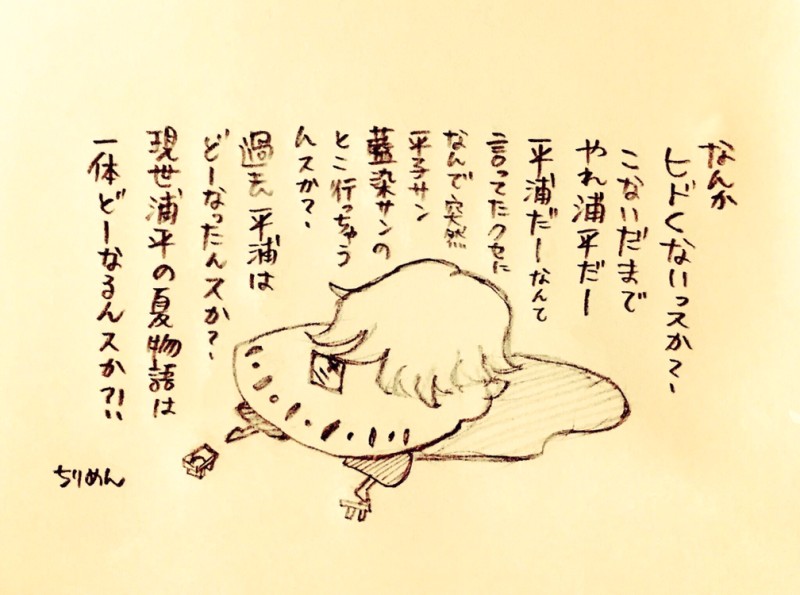 なんか
ヒドくないっスか?、
こないだまで
やれ浦平だー
平浦だーなんて
言ってたクセに
なんで突然
平子サン
藍染サンの
とこ行っちゃう
んスか?、
過去平浦は
どーなったんスか?、
現世浦平の夏物語は
一体どーなるんスか?!!
ちりめん